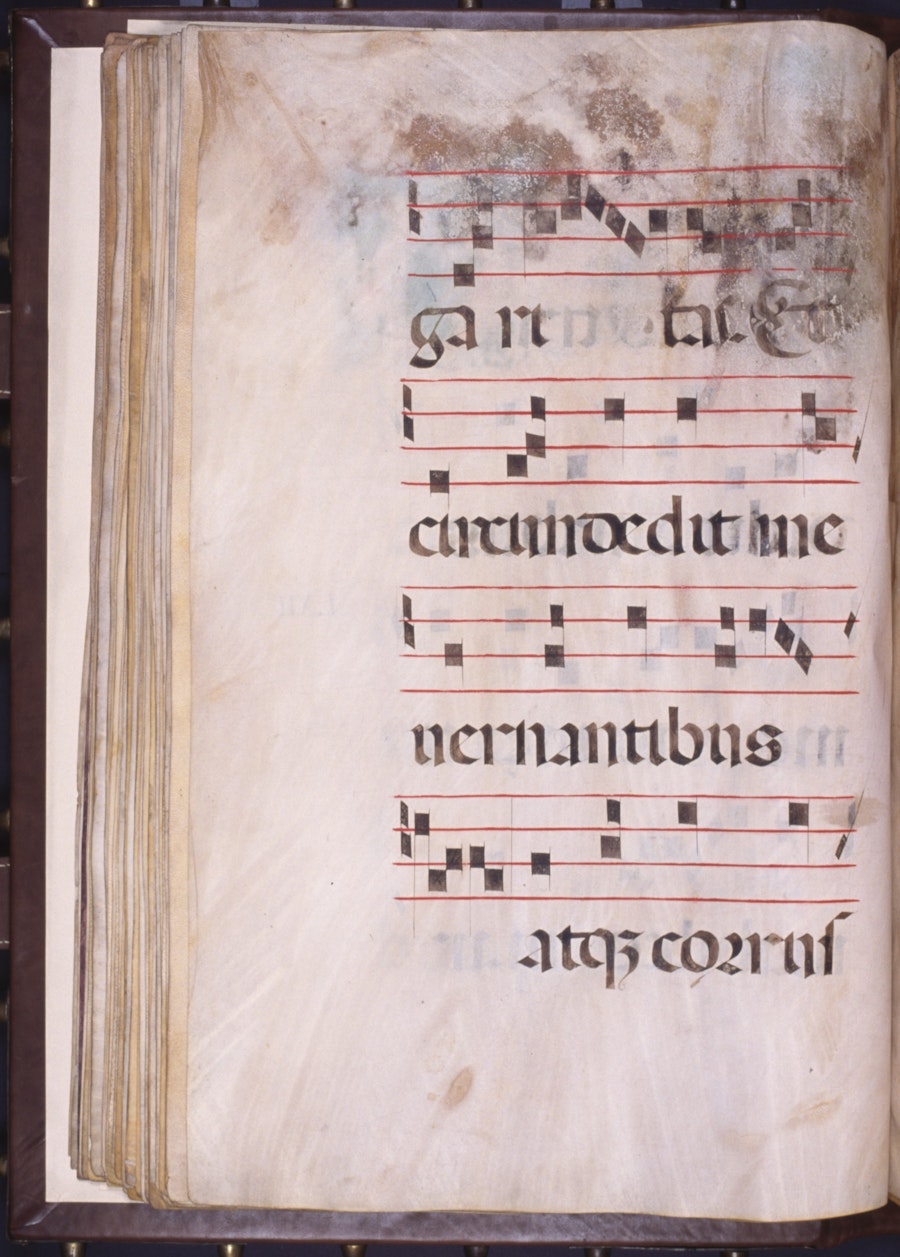 ga ri tas. Et
circumdedit me
uernantibus
atqꝫ corrus